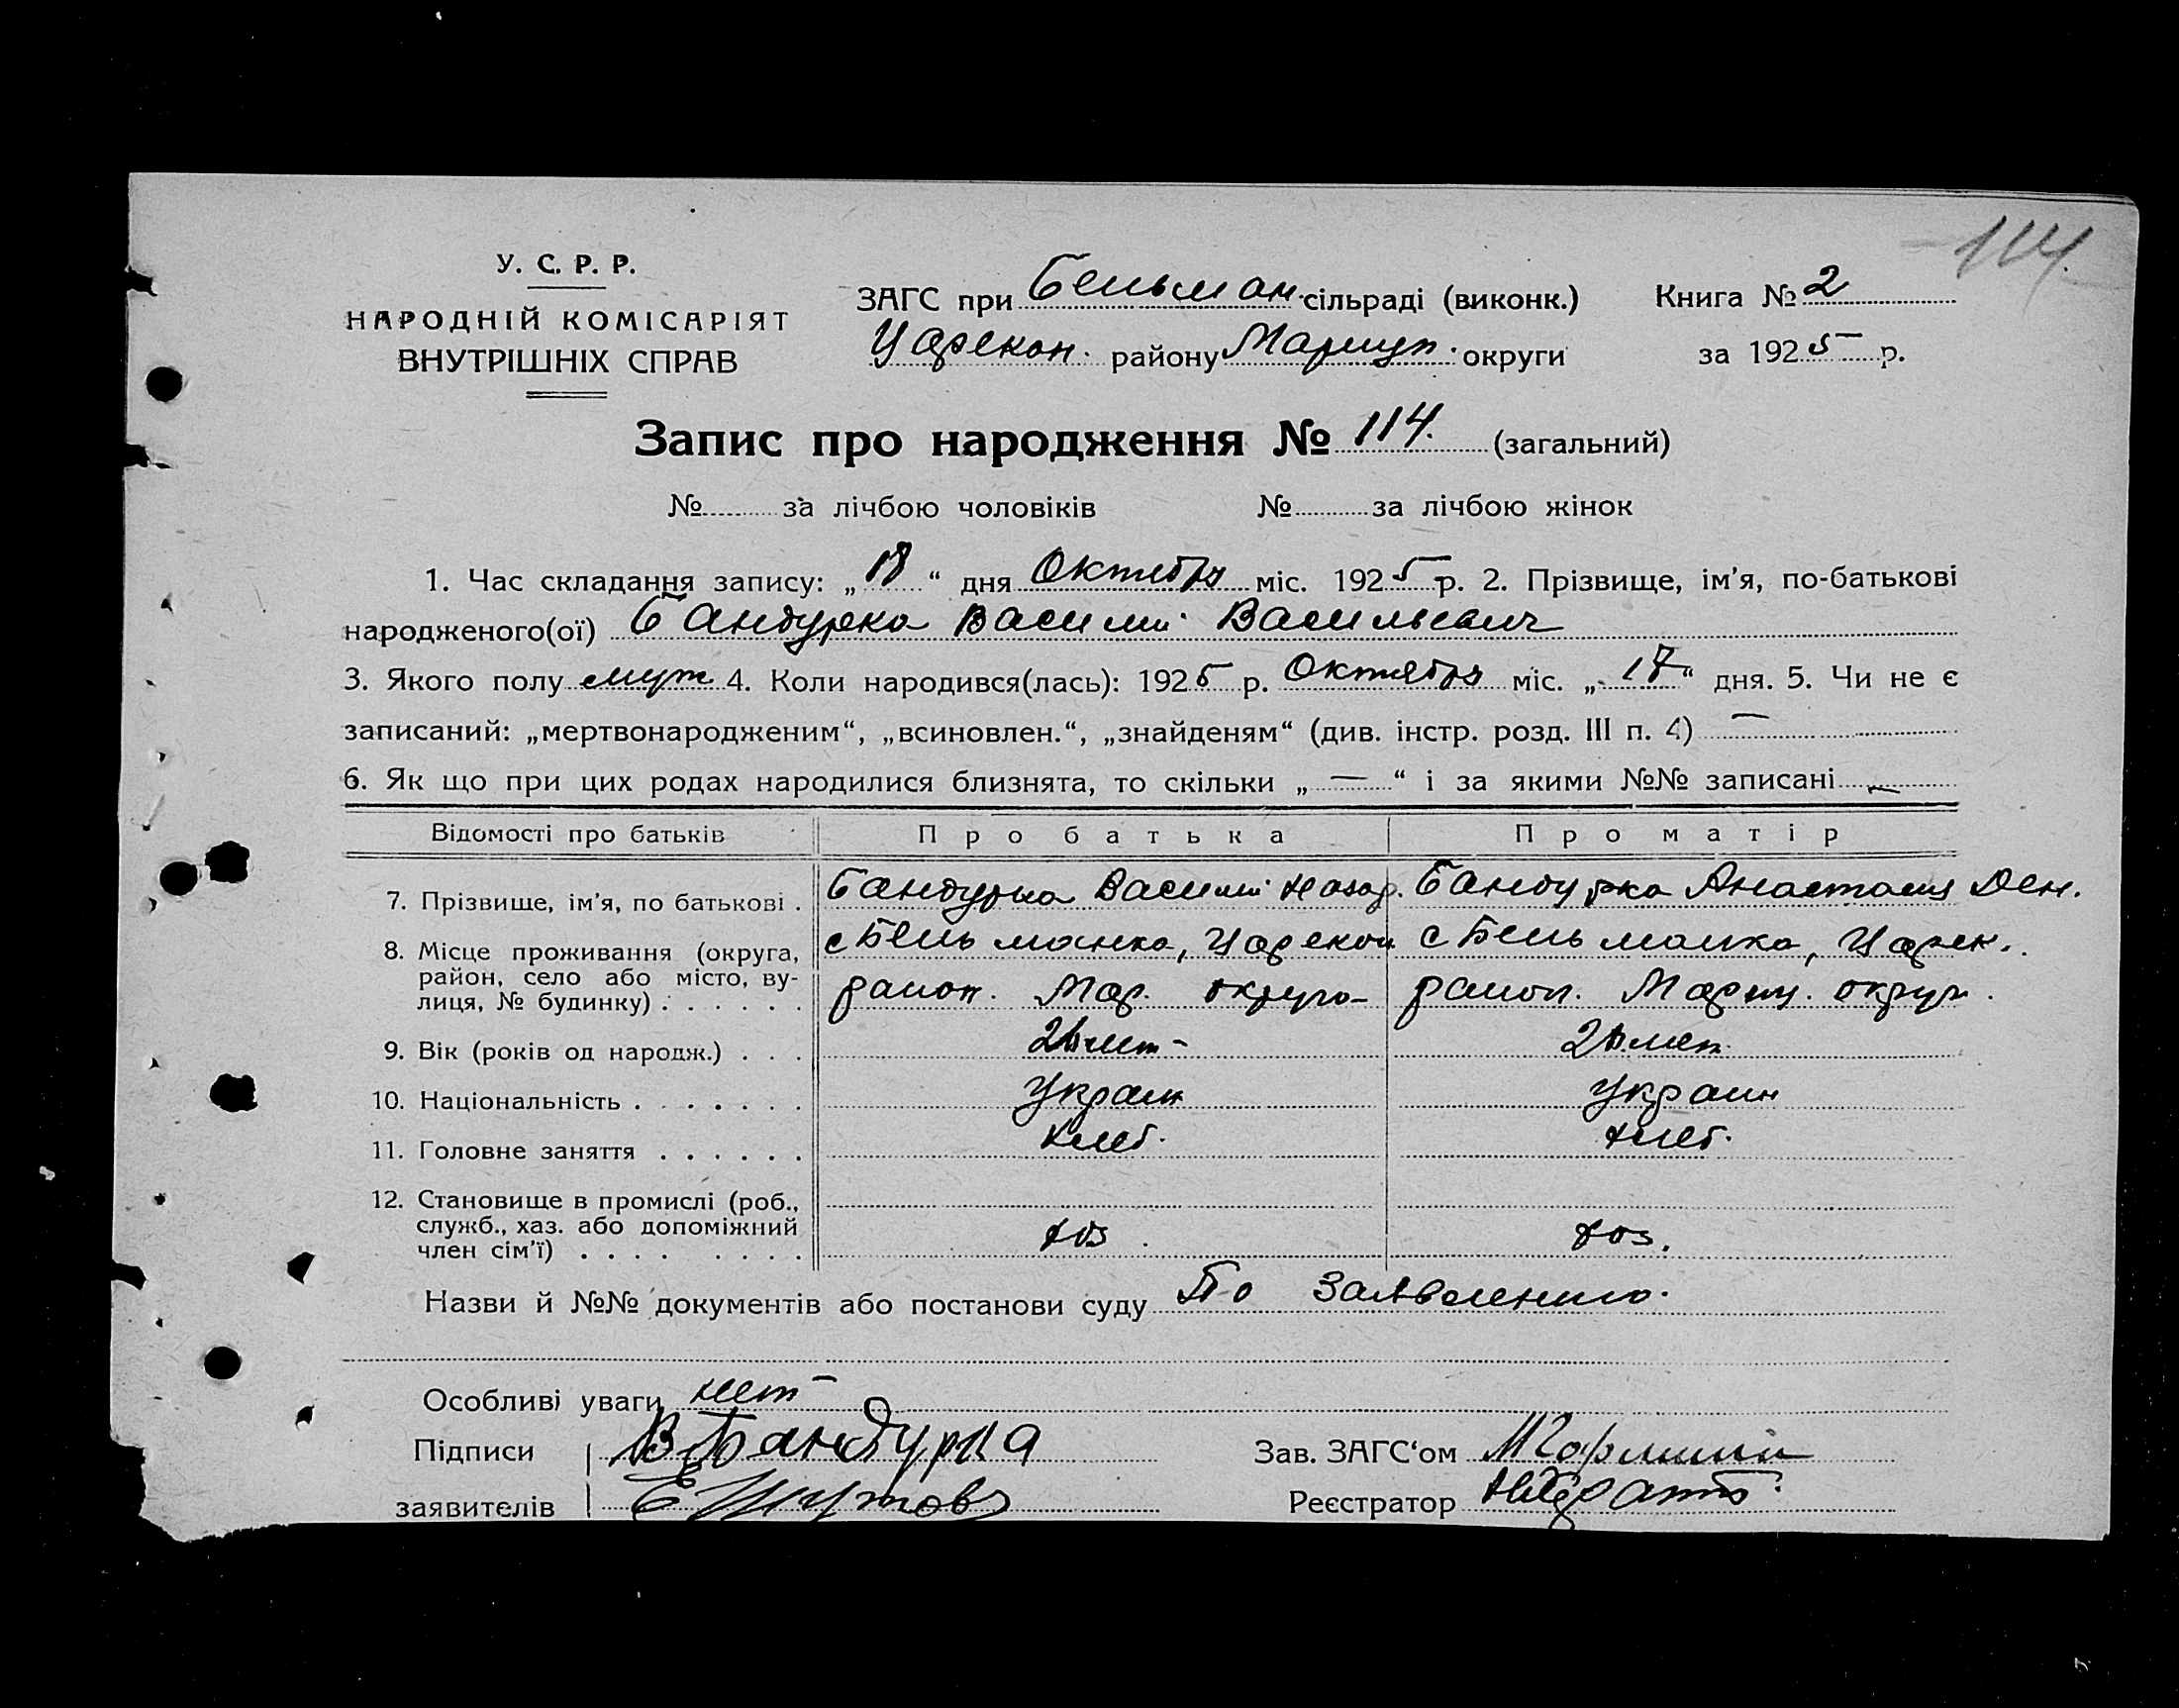 114.
У. С. Р. Р.
НАРОДНІЙ КОМІСАРІЯТ
ВНУТРІШНІХ СПРАВ
ЗАГС при Бельман. сільраді (виконк.)
Царекон. району Мариуп. округи
Книга № 2
за 1925 р.
Запис про народження № 114. (загальний)
№ за лічбою чоловіків № за лічбою жінок
1. Час складання запису: „18“ дня Октября міс. 1925 р. 2. Прізвище, ім’я, по-батькові
народженого(ої) Бандурка Василий Васильевич
3. Якого полу муж 4. Коли народився(лась): 1925 р. Октября міс. „17“ дня. 5. Чи не є
записаний: „мертвонародженим“, „всиновлен.“, „знайденям“ (див. інстр. розд. III п. 4) —
6. Як що при цих родах народилися близнята, то скільки „—“ і за якими №№ записані —
Відомості про батьків Про батька Про матір
7. Прізвище, ім’я, по батькові . Бандурка Василий Назар. Бандурка Анастасия Ден.
8. Місце проживання (округа, район, село або місто, ву-лиця, № будинку) . . . . . .
с Бельманка, Царекон с Бельманка, Царек.
район. Мар. округа район. Мариу. округ.
9. Вік (років од народж.) . . . лет лет
10. Національність . . . . . . . Украин Украин
11. Головне заняття . . . . . . хлеб. хлеб.
12. Становище в промислі (роб.,
служб., хаз. або допоміжний
член сім’ї) . . . . . . . . хоз. хоз.
Назви й №№ документів або постанови суду По Заявлению.
Особливі уваги нет
Підписи В Бандурка Зав. ЗАГС‘ом
заявителів Реєстратор